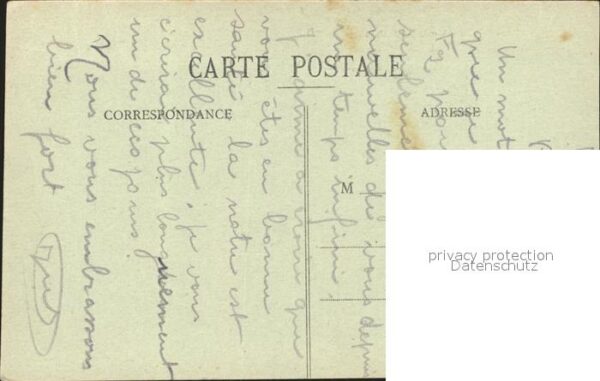 CARTE POSTALE
CORRESPONDANCE
ADRESSE
M
privacy protection
Datenschutz
Un mot
que
seulement
nouvelles de vous depuis
un temps infini.
J'aime à croire que
vous êtes en bonne
santé la nôtre est
excellente; je vous
écrirai plus longuement
un de ces jours.
Nous vous embrassons
bien fort